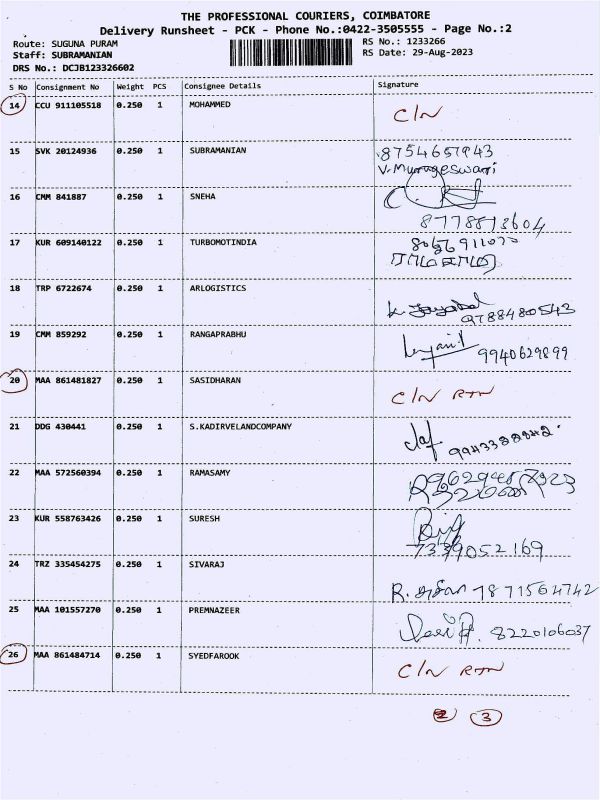 THE PROFESSIONAL COURIERS, COIMBATORE
Delivery Runsheet - PCK - Phone No.:0422-3505555 - Page No.:2
Route: SUGUNA PURAM
RS No.: 1233266
Staff: SUBRAMANIAN
RS Date: 29-Aug-2023
DRS No.: DCJB123326602
S No Consignment No Weight PCS Consignee Details Signature
14 CCU 911105518 0.250 1 MOHAMMED C/N
15 SVK 20124936 0.250 1 SUBRAMANIAN 8754657943
V. Murugeswari
16 CMM 841887 0.250 1 SNEHA
8778873604
17 KUR 609140122 0.250 1 TURBOMOTINDIA
18 TRP 6722674 0.250 1 ARLOGISTICS
9788480543
19 CMM 859292 0.250 1 RANGAPRABHU 9940629899
20 MAA 861481827 0.250 1 SASIDHARAN C/N RTN
21 DDG 430441 0.250 1 S.KADIRVELANDCOMPANY
22 MAA 572560394 0.250 1 RAMASAMY
23 KUR 558763426 0.250 1 SURESH
7339052169
24 TRZ 335454275 0.250 1 SIVARAJ 7871564742
25 MAA 101557270 0.250 1 PREMNAZEER 8220106037
26 MAA 861484714 0.250 1 SYEDFAROOK C/N RTN
3